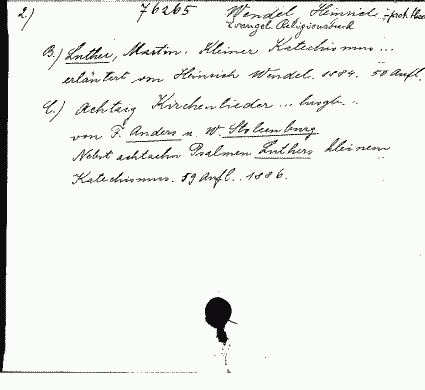 2.) 76265 Wendel Heinrich
Evangel. Religionsbuch
B.) Luther, Martin. Kleiner Katechismus ...
erläutert von Heinrich Wendel. 1884. 50 Aufl.
C.) Achtzig Kirchenlieder ... hrsgb. ..
von F. Anders u. W. Stolzenburg
Nebst achtzehn Psalmen Luthers kleinem
Katechismus. 59 Aufl.. 1886.